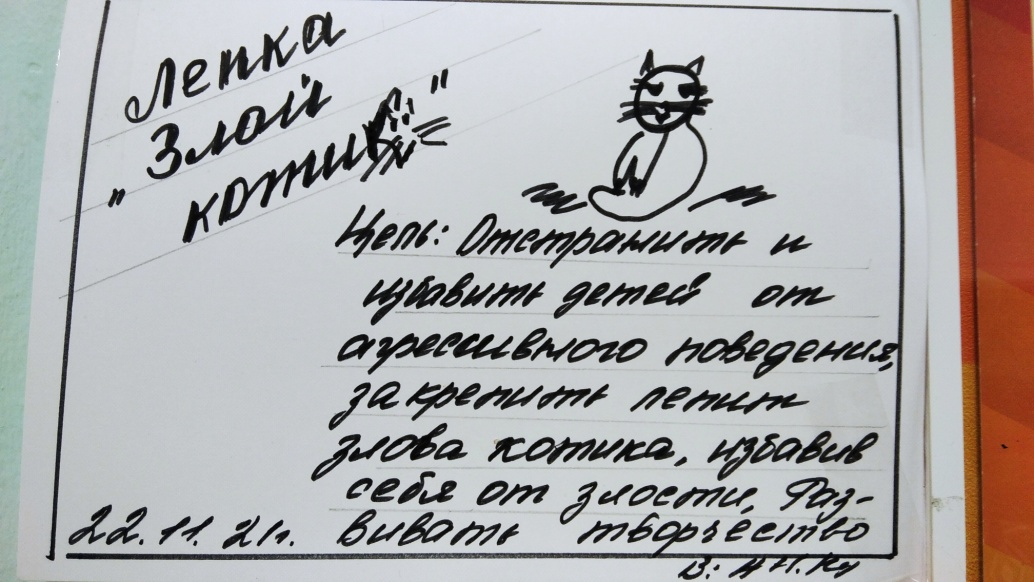 Лепка
"Злой
котик"
Цель: Отстранить и
избавить детей от
агрессивного поведения,
закрепить лепит
злова котика, избавив
себя от злости, Раз-
вивать творчество
22.11.21г.
В: